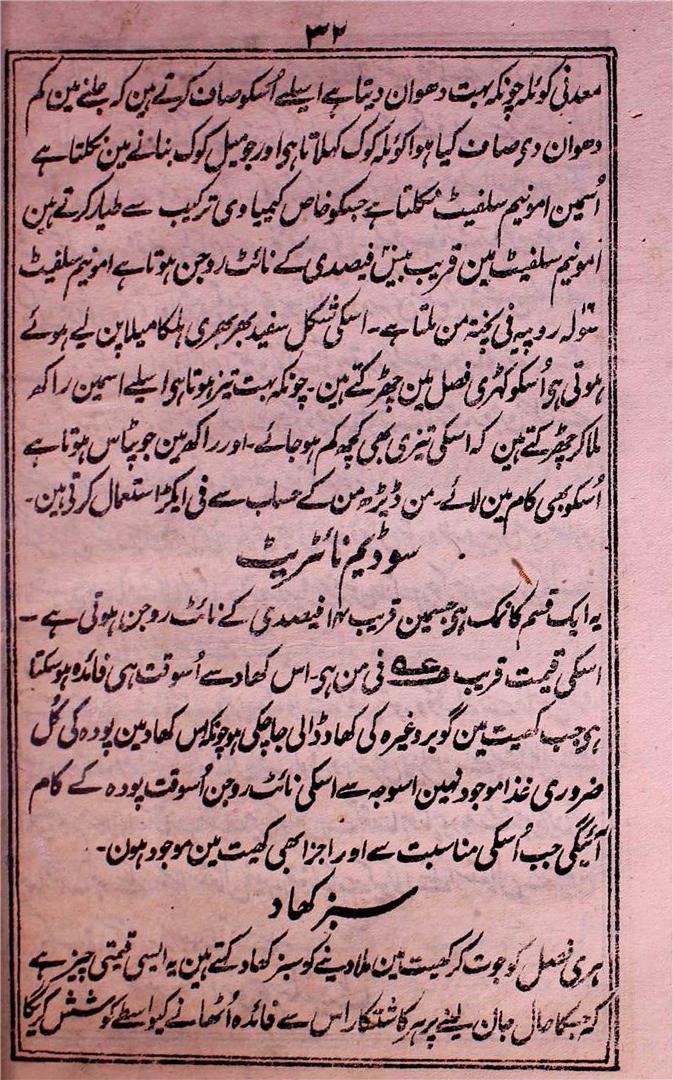 ۳۲
معدنی کوئلہ چونکہ بہت دھوان دیتا ہے اسیلے اُسکو صاف کرتے ہین کہ جلنے مین کم
دھوان دی صاف کیا ہوا کوئلہ کوک کہلاتا ہی اور جو میل کوک بنانے مین نکلتا ہے
اُسمین امونیم سلفیٹ نکلتا ہے جسکو خاص کیمیاوی ترکیب سے طیار کرتے ہین
امونیم سلفیٹ مین قریب بینش فیصدی کے نائٹ روجن ہوتا ہے امونیم سلفیٹ
روپیہ فی پختہ من ملتا ہے۔ اسکی شکل سفید بھر بھری ہلکا میلا پن لیے ہوئے
ہوتی ہی اُسکو کھڑی فصل مین چھڑکتے ہین۔ چونکہ بہت تیز ہوتا ہی اسیلے اسمین راکھ
ملا کر چھڑکتے ہین کہ اسکی تیزی بھی کچھ کم ہو جائے۔ اور راکھ مین جو پٹاس ہوتا ہے
اُسکو بھی کام مین لائے۔ من ڈیڑھ من کے حساب سے فی ایکڑ استعمال کرتی ہین۔
سوڈیم نائٹریٹ
یہ ایک قسم کا نمک ہی جسمین قریب فیصدی کے نائٹ روجن ہوتی ہے۔
اسکی قیمت قریب فی من ہی۔ اس کھاد سے اُسوقت ہی فائدہ ہو سکتا
ہی جب کھیت مین گوبر وغیرہ کی کھاد ڈالی جا چکی ہو چونکہ اس کھاد مین پودہ کی کُل
ضروری غذا موجود نہین اسوجہ سے اسکی نائٹ روجن اُسوقت پودہ کے کام
آئیگی جب اُسکی مناسبت سے اور اجزا بھی کھیت مین موجود ہون۔
سبز کھاد
ہری فصل کو جوت کر کھیت مین ملا دینے کو سبز کھاد کہتے ہین یہ ایسی قیمتی چیز ہے
کہ جسکا حال جان لینے پر ہر کاشتکار اس سے فائدہ اُٹھانے کیواسطے کوشش کریگا